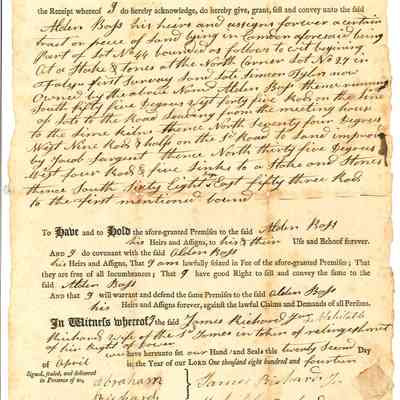 the Receipt whereof I do hereby acknowledge, do hereby give, grant, sell and convey unto the said
Alden Boss his heirs and assigns forever a certain
tract or piece of Land lying in Camden aforesaid being
Part of Lot No 44 bounded as follows to wit begining
At a Stake & Stones at the North Corner Lot No 27 in
first survey land late Simeon Tyler now
Owned by the above Name Alden Boss thence running
South fifty five Degrees West forty five Rods on the Line
of Lots to the Road Leading from the meeting house
to the lime kilns thence North Seventy four Degrees
West Nine Rods & half on the Sd Road to Land improv
by Jacob Sargent thence North thirty five Degrees
West four Rods & five Links to a Stake and Stones
thence South Sixty Eight East fifty three Rods
to the first mentioned bound
To Have and to Hold the afore-granted Premises to the said Alden Boss
his Heirs and Assigns, to his & their Use and Behoof forever.
And I do covenant with the said Alden Boss
his Heirs and Assigns, That I am lawfully seized in Fee of the afore-granted Premises; That
they are free of all Incumbrances; That I have good Right to sell and convey the same to the
said Alden Boss
And that I will warrant and defend the same Premises to the said Alden Boss
his Heirs and Assigns forever, against the lawful Claims and Demands of all Persons.
In Witness whereof, I the said James Richard Jun & Mehitable
Richards wife of the Sd James in token of relinquishment
of his Right of
have hereunto set our Hand and Seals this twenty Second Day
of April in the Year of our LORD One thousand eight hundred and fourteen
Signed, sealed, and delivered
in Presence of us,
Abraham
Richards
James Richard Jr